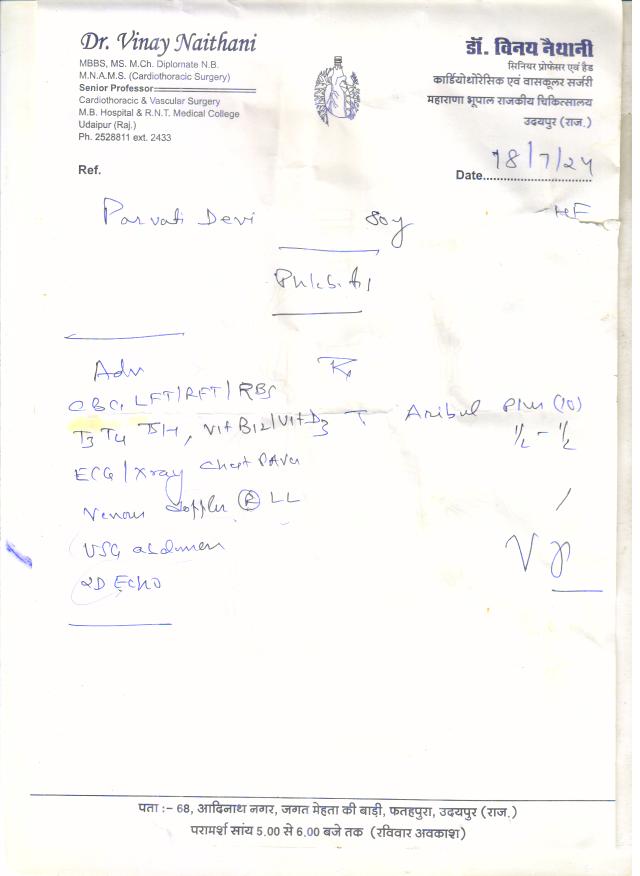 Dr. Vinay Naithani
MBBS, MS. M.Ch. Diplomate N.B.
M.N.A.M.S. (Cardiothoracic Surgery)
Senior Professor
Cardiothoracic & Vascular Surgery
M.B. Hospital & R.N.T. Medical College
Udaipur (Raj.)
Ph. 2528811 ext. 2433
डॉ. विनय नैथानी
सिनियर प्रोफेसर एवं हैड
कार्डियोथोरेसिक एवं वासकूलर सर्जरी
महाराणा भूपाल राजकीय चिकित्सालय
उदयपुर (राज.)
Ref.
Date 18/7/24
Parvati Devi 80y
Adv Rx
CBC, LFT/RFT/RBS
T3 T4 TSH, Vit B12/Vit D3 T Plus (10)
1/2 - 1/2
ECG/Xray Chest PA
Venous Doppler (R) LL
USG abdomen
2D Echo
पता :- 68, आदिनाथ नगर, जगत मेहता की बाड़ी, फतहपुरा, उदयपुर (राज.)
परामर्श सांय 5.00 से 6.00 बजे तक (रविवार अवकाश)